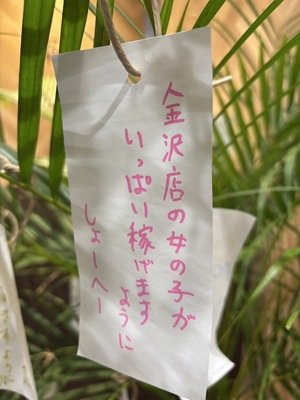 金沢店の女の子が
いっぱい稼げます
ように
しょーへー